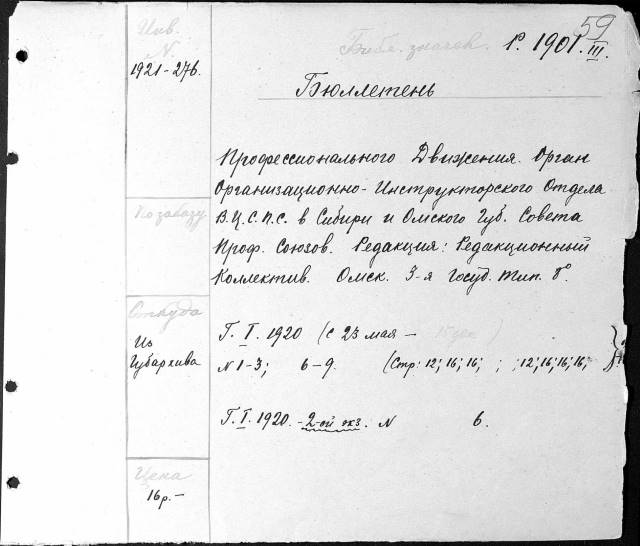 59
Инв.
N
1921-276.
Библ. значок. P. 1901.
III.
Бюллетень
Профессионального Движения. Орган
Организационно-Инструкторского Отдела
В.Ц.С.П.С. в Сибири и Омского Губ. Совета
Проф. Союзов. Редакция: Редакционный
Коллектив. Омск. 3-я Госуд. тип. 8°.
По заказу
Откуда
Из
Губархива
Г. I. 1920 (с 23 мая - 15 дек )
N 1-3; 6-9. (Стр: 12; 16; 16; ; ; 12; 16; 16; 16;
Г. I. 1920. - 2-ой экз. N 6.
Цена
16 р. -